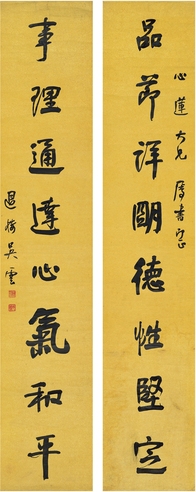 心蓮大兄屬書即正
品節詳明德性堅定
事理通達心氣和平
退樓吳雲